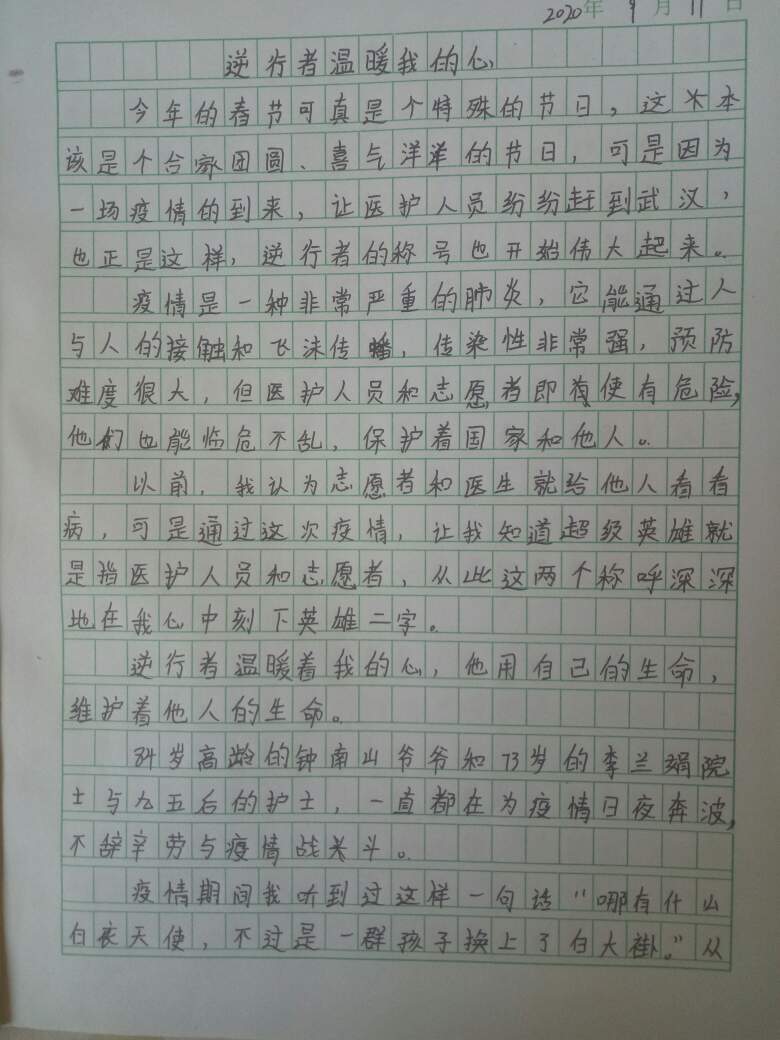 2020年 9月 11日
逆行者温暖我的心
今年的春节可真是个特殊的节日，这本
该是个合家团圆、喜气洋洋的节日，可是因为
一场疫情的到来，让医护人员纷纷赶到武汉，
也正是这样，逆行者的称号也开始伟大起来。
疫情是一种非常严重的肺炎，它能通过人
与人的接触和飞沫传播，传染性非常强，预防
难度很大，但医护人员和志愿者即使有危险，
他们也能临危不乱，保护着国家和他人。
以前，我认为志愿者和医生就给他人看看
病，可是通过这次疫情，让我知道超级英雄就
是指医护人员和志愿者，从此这两个称呼深深
地在我心中刻下英雄二字。
逆行者温暖着我的心，他用自己的生命，
维护着他人的生命。
84岁高龄的钟南山爷爷和73岁的李兰娟院
士与九五后的护士，一直都在为疫情日夜奔波，
不辞辛劳与疫情战斗。
疫情期间我听到过这样一句话“哪有什山
白衣天使，不过是一群孩子换上了白大褂。”从